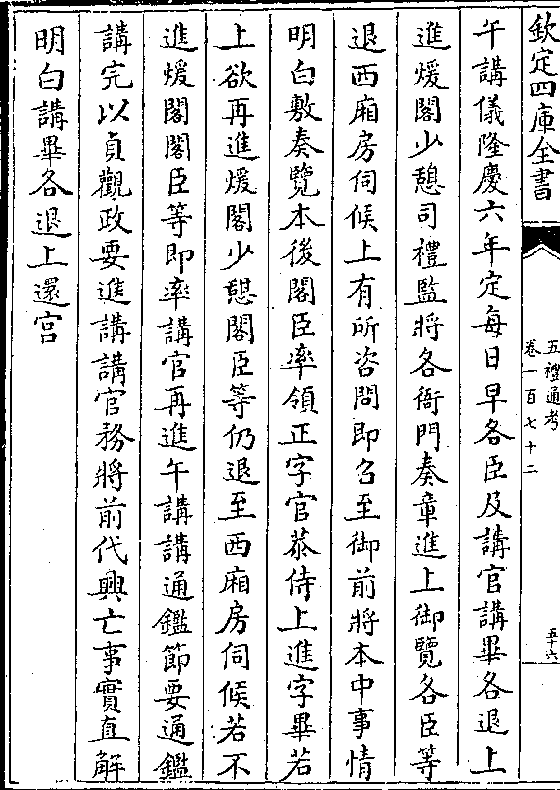 欽定四庫全書
五禮通考
卷一百七十二
五十六
午講儀隆慶六年定每日早各臣及講官講畢各退上
進煖閣少憩司禮監將各衙門奏章進上御覽各臣等
退西廂房伺候上有所咨問即召至御前將本中事情
明白敷奏覽本後閣臣率領正字官恭侍上進字畢若
上欲再進煖閣少憩閣臣等仍退至西廂房伺候若不
進煖閣閣臣等即率講官再進午講講通鑑節要通鑑
講完以貞觀政要進講講官務將前代興亡事實直解
明白講畢各退上還宫